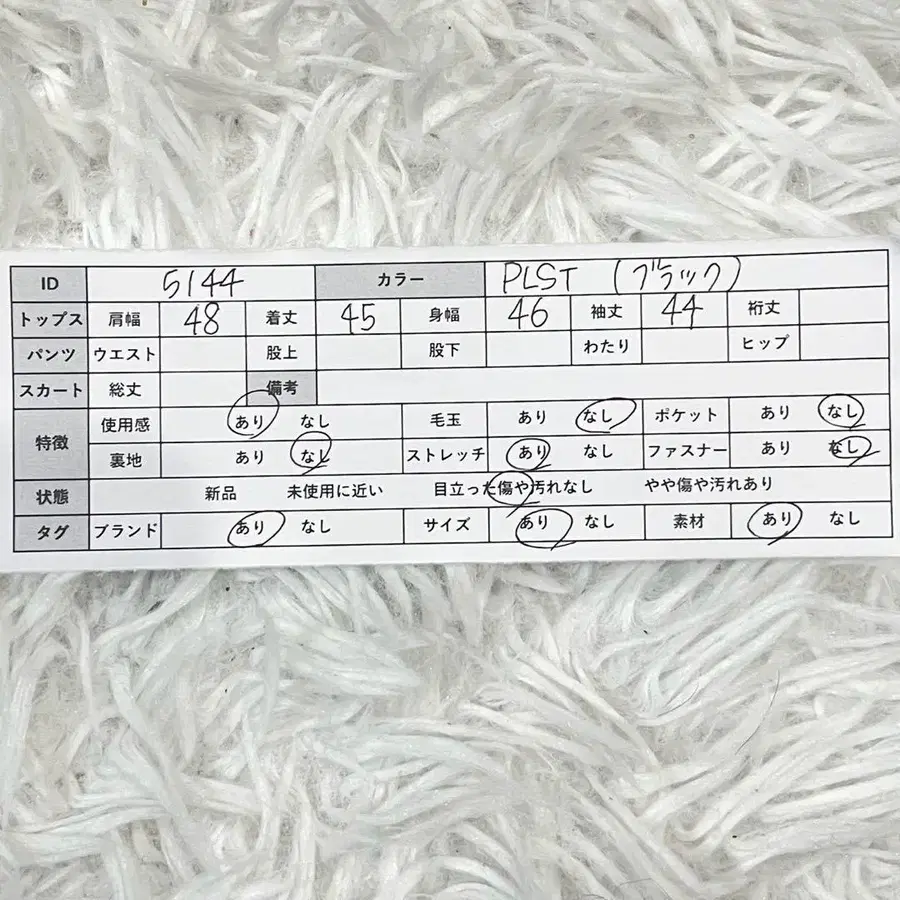 ID 5144 カラー PLST (ブラック)
トップス 肩幅 48 着丈 45 身幅 46 袖丈 44 裄丈
パンツ ウエスト 股上 股下 わたり ヒップ
スカート 総丈 備考
特徴 使用感 あり なし 毛玉 あり なし ポケット あり なし
裏地 あり なし ストレッチ あり なし ファスナー あり なし
状態 新品 未使用に近い 目立った傷や汚れなし やや傷や汚れあり
タグ ブランド あり なし サイズ あり なし 素材 あり なし